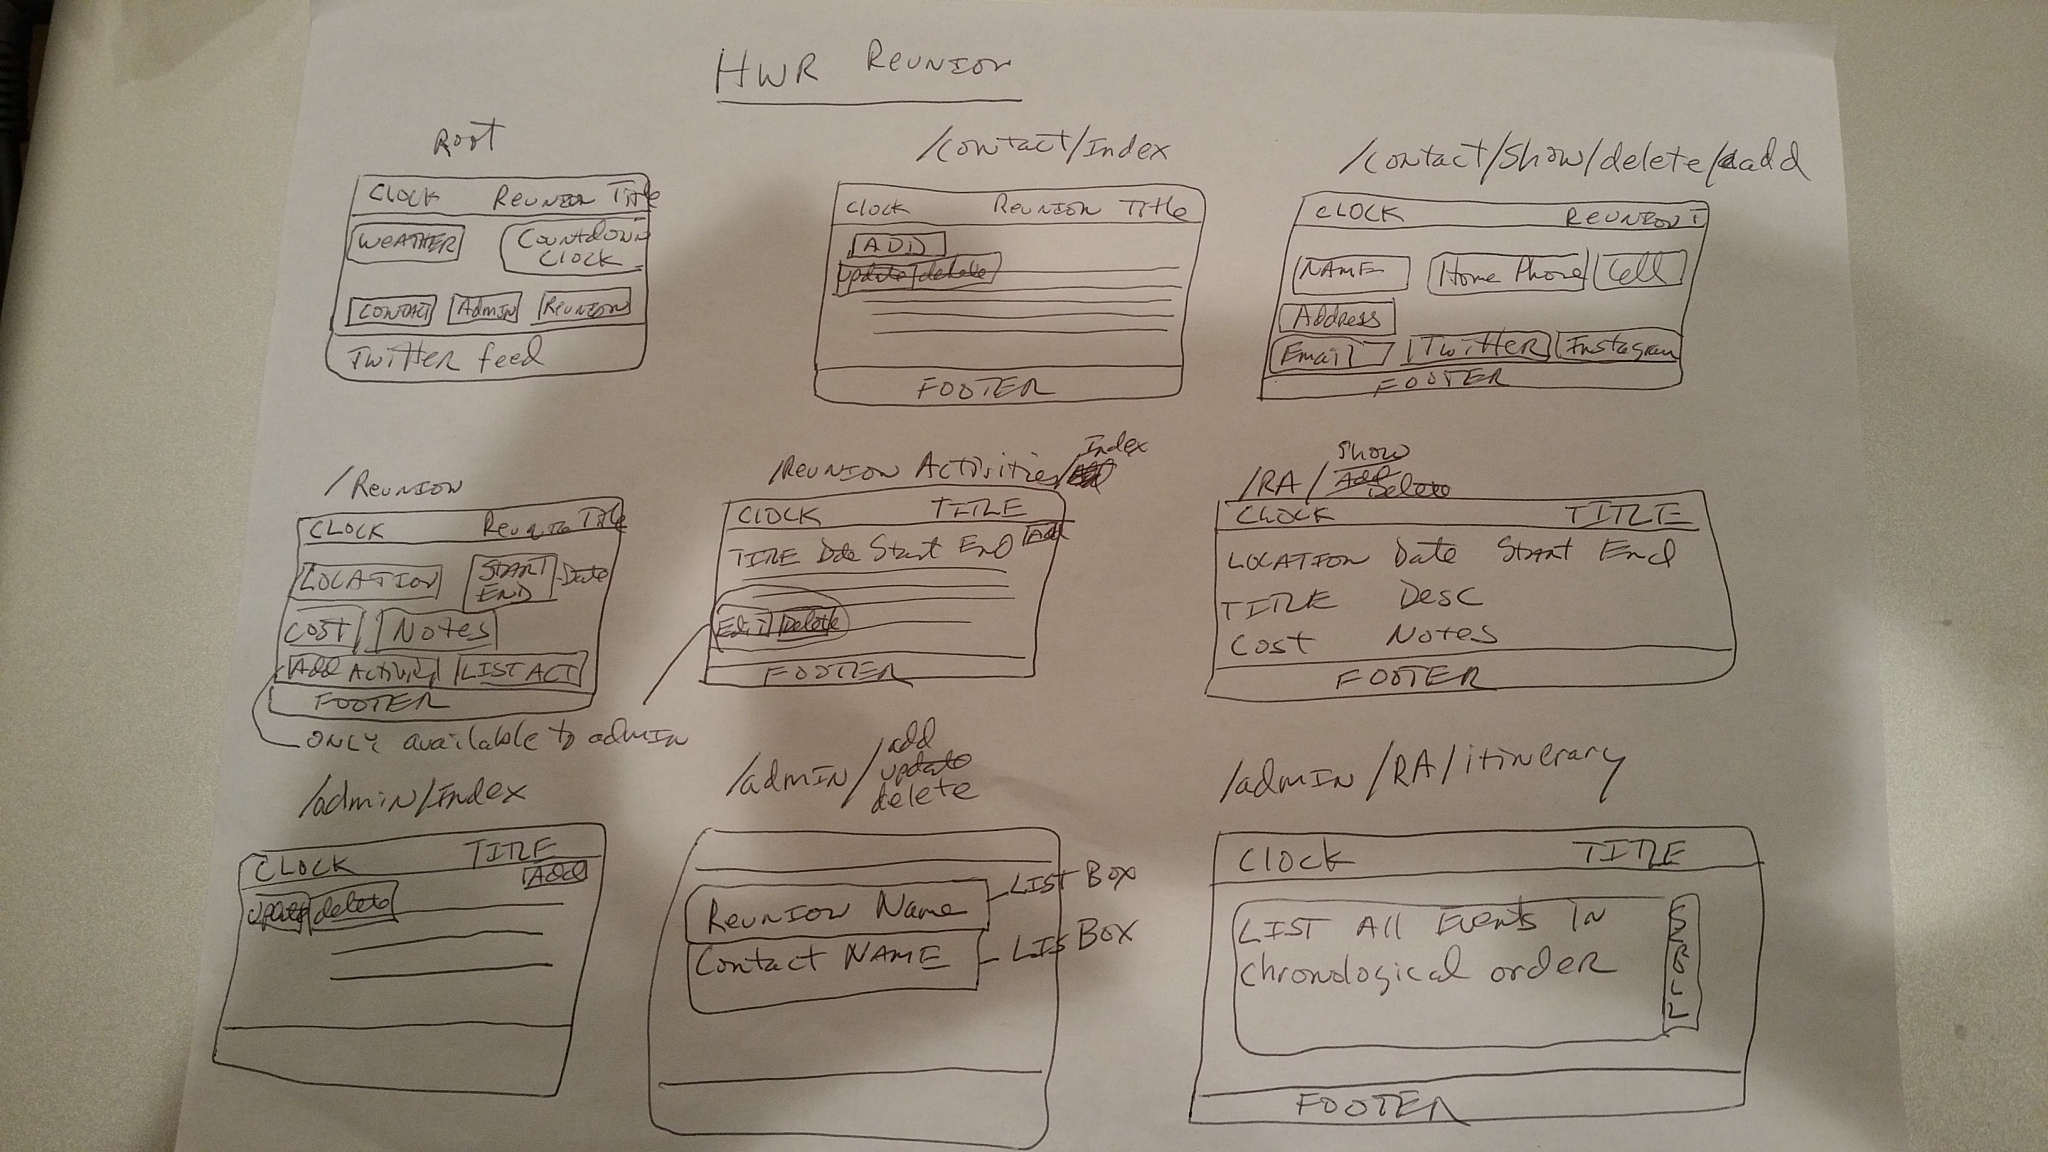 HWR REUNION
Root
CLOCK Reunion Title
WEATHER
COUNTDOWN CLOCK
CONTACT Admin REUNION
Twitter feed
/Contact/Index
Clock Reunion Title
ADD
update delete
FOOTER
/Contact/Show/delete/add
CLOCK REUNION T
NAME Home Phone Cell
Address
Email Twitter Instagram
FOOTER
/Reunion
CLOCK Reunion Title
LOCATION
START END - Date
COST Notes
Add Activity LIST ACT
FOOTER
ONLY available to admin
/Reunion Activities/Index
CLOCK TITLE
TITLE Date Start End Add
Edit Delete
FOOTER
/RA/
Show
Add
Delete
CLOCK TITLE
LOCATION Date Start End
TITLE Desc
Cost Notes
FOOTER
/admin/Index
CLOCK TITLE
Add
Update delete
/admin/
add
update
delete
Reunion Name - LIST BOX
Contact NAME - LIS BOX
/admin/RA/itinerary
Clock TITLE
LIST All Events In
Chronological order
SROLL
FOOTER